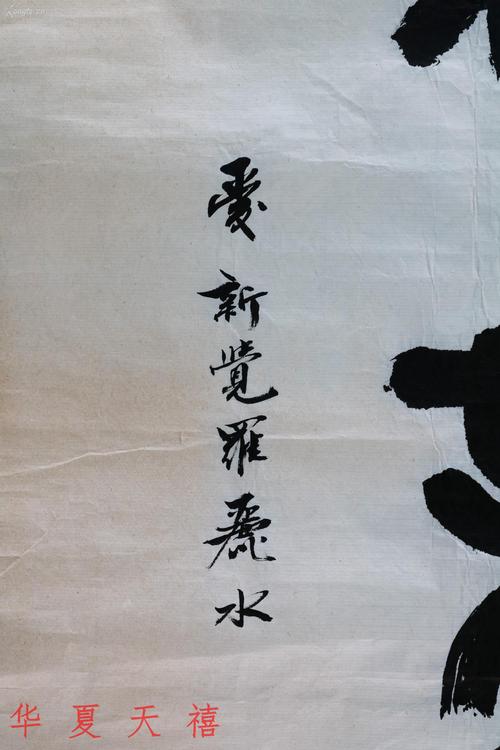 愛新覺羅麗水
华夏天禧